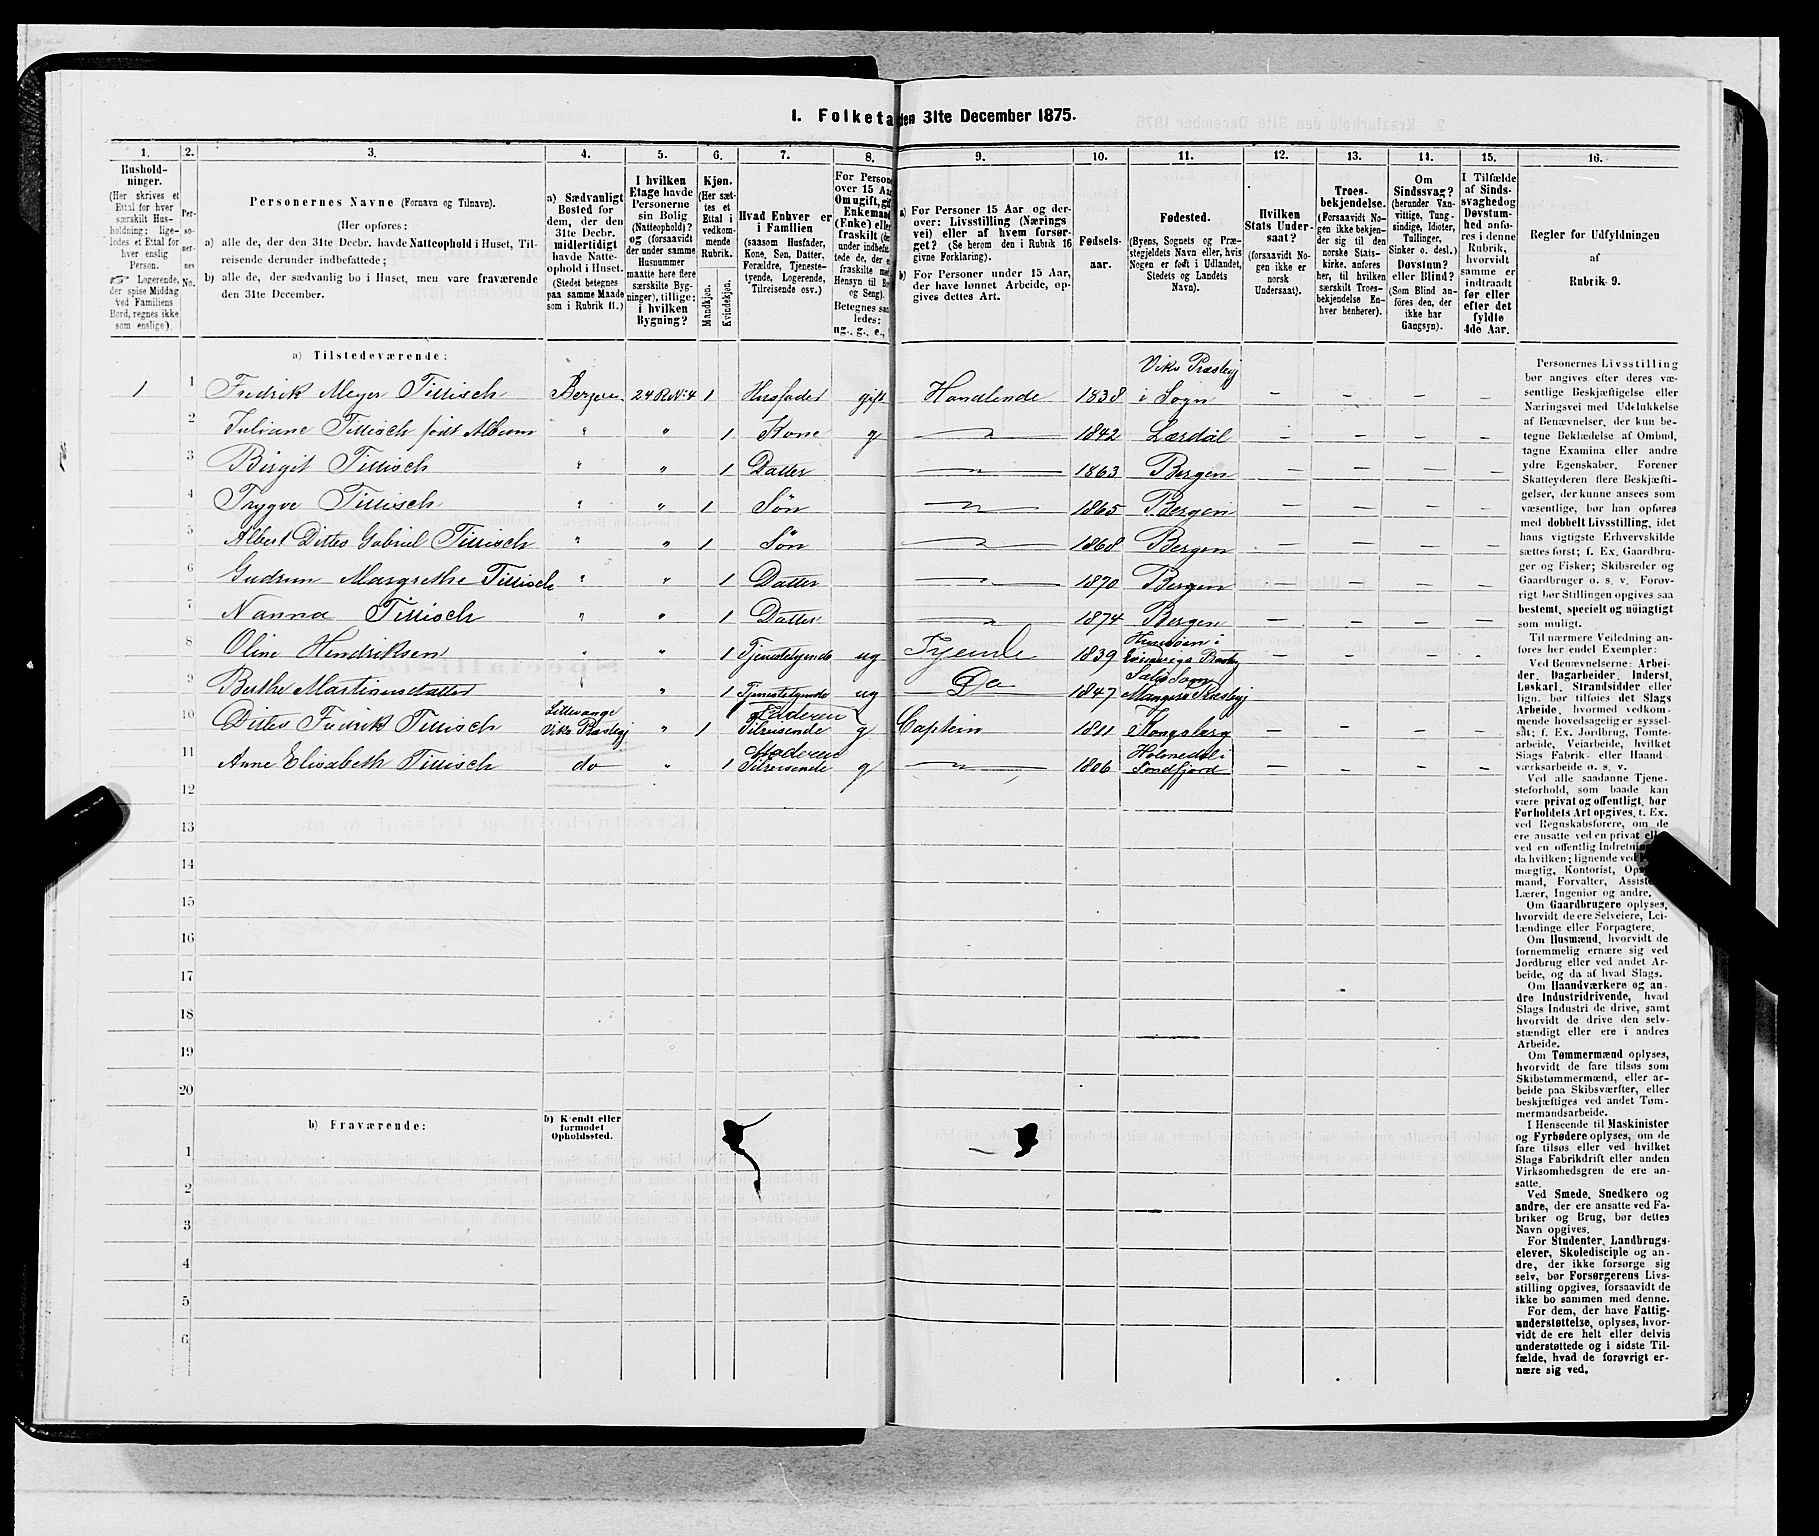 1. Folketa den 31te December 1875.
1. 2. 3. 4. 5. 6. 7. 8. 9. 10. 11. 12. 13. 14. 15. 16.
Hushold-
ninger.
(Her skrives et
Ettal for hver
særskilt Hus-
holdning; lige-
ledes et Ettal for
hver enslig
Person.
Logerende,
der spise Middag
ved Familiens
Bord, regnes ikke
som enslige).
Per-
so-
ner-
nes
No.
Personernes Navne (Fornavn og Tilnavn).
(Her opføres:
a) alle de, der den 31te Decbr. havde Natteophold i Huset, Til-
reisende derunder indbefattede;
b) alle de, der sædvanlig bo i Huset, men vare fraværende
den 31te December.
a) Sædvanligt
Bosted for
dem, der den
31te Decbr.
midlertidigt
havde Natte-
ophold i Huset.
(Stedet betegnes
paa samme Maade
som i Rubrik 11.)
I hvilken
Etage havde
Personerne
sin Bolig
(Natteophold)?
og (forsaavidt
der under samme
Husnummer
maatte høre flere
særskilte Byg-
ninger), tillige:
i hvilken
Bygning?
Kjøn.
(Her sæt-
tes et
Ettal i
vedkom-
mende
Rubrik.
Mandkjøn.
Kvindekjøn.
Hvad Enhver er
i Familien
(saasom Husfader,
Kone, Søn, Datter,
Forældre, Tjeneste-
tyende, Logerende,
Tilreisende osv.)
For Persone
over 15 Aar
Om ugift, gift
Enkemand
(Enke) eller
fraskilt (der
under indbefat-
tede de, der er
fraskilte med
Hensyn til Bo
og Seng).
Betegnes saa
ledes:
ug., g., e.,
a) For Personer 15 Aar og der-
over: Livsstilling (Nærings
vei) eller af hvem forsør-
get? (Se herom den i Rubrik 16
givne Forklaring).
b) For Personer under 15 Aar,
der have lønnet Arbeide, op-
gives dettes Art.
Fødsels-
aar.
Fødested.
(Byens, Sognets og Præ-
stegjeldets Navn eller, hvis
Nogen er født i Udlandet,
Stedets og Landets
Navn).
Hvilken
Stats Under-
saat?
(forsaavidt No-
gen ikke er
norsk
Undersaat).
Troes-
bekjendelse.
(Forsaavidt No-
gen ikke bekjen-
der sig til den
norske Stats-
kirke, anføres
her, til hvilken
særskilt Troes-
bekjendelse En-
hver henhører).
Om
Sindssvag?
(herunder Van-
vittige, Tung-
sindige, Idioter,
Tullinger,
Sinker o. desl.)
Døvstum?
eller Blind?
(Som Blind an-
føres den, der
ikke har
Gangsyn).
I Tilfælde
af Sinds-
svaghed og
Døvstum-
hed anfø-
res i denne
Rubrik,
hvorvidt
samme er
indtraadt
før eller
efter det
fyldte
4de Aar.
Regler for Udfyldningen
af
Rubrik 9.
a) Tilstedeværende:
1 1 Fredrik Meyer Tillisch Bergen 24 R No 4 1 Husfader gift Handlende 1838 Viks Præstegj i Sogn – – – –
2 Juliane Tillisch født " " 1 Kone g — 1842 Lærdal – – – –
3 Birgit Tillisch " " 1 Datter — 1863 Bergen – – – –
4 Trygve Tillisch " " 1 Søn — 1865 Bergen – – – –
5 Albert Ditlev Gabriel Tillisch " " 1 Søn — 1868 Bergen – – – –
6 Gudrun Margrethe Tillisch " " 1 Datter — 1870 Bergen – – – –
7 Nanna Tillisch " " 1 Datter — 1874 Bergen – – – –
8 Oline Hendriksen " " 1 Tjenestetyende ug Tyende 1839 – – – –
9 Berthe Martinusdatter " " 1 Tjenestetyende ug Do 1847 Mangers Præstegj – – – –
10 Ditlev Fredrik Tillisch Viks Præstegj " 1 Faderen Tilreisende g Captein 1811 Kongsberg – – –
11 Anne Elisabeth Tillisch do " 1 Moderen Tilreisende g — 1806 Holmedal i Søndfjord – – – –
12
13
14
15
16
17
18
19
20
b) Fraværende:
b) Kjendt eller
formodet
Opholdssted.
1
2
3
4
5
6
Personernes Livsstilling
bør angives efter deres væ-
sentlige Beskjæftigelse eller
Næringsvei med Udelukkelse
af Benævnelser, der kun be-
tegne Beklædelse af Ombud,
tagne Examina eller andre
ydre Egenskaber. Forener
Skatteyderen flere Beskjæfti-
gelser, der kunne ansees som
væsentlige, bør han opføres
med dobbelt Livsstilling, idet
hans vigtigste Erhvervskilde
sættes først; f. Ex. Gaardbru-
ger og Fisker; Skibsreder og
Gaardbruger o. s. v. Forøv-
rigt bør Stillingen opgives saa
bestemt, specielt og nøiagtigt
som muligt.
Til nærmere Veiledning an-
føres her endel Exempler:
Ved Benævnelserne: Arbei-
der, Dagarbeider, Inderst,
Løskarl, Strandsidder eller
lign. bør tilføies det Slags
Arbeide, hvormed vedkom-
mende hovedsagelig er syssel-
sat; f. Ex. Jordbrug, Tomte-
arbeide, Veiarbeide, hvilket
Slags Fabrik- eller Haand
værksarbeide o. s. v.
Ved alle saadanne Tjene-
steforhold, som baade kan
være privat og offentligt, bør
Forholdets Art opgives, t. Ex.
ved Regnskabsførere, om de
ere ansatte ved en privat eller
ved en offentlig Indretning
da hvilken; lignende ved
mægtig, Kontorist, Op
mand, Forvalter, Assiste
Lærer, Ingeniør og andre.
Om Gaardbrugere oplyses,
hvorvidt de ere Selveiere, Lei-
lændinge eller Forpagtere.
Om Husmænd, hvorvidt de
fornemmelig ernære sig ved
Jordbrug eller ved andet Ar-
beide, og da af hvad Slags.
Om Haandværkere og an-
dre Industridrivende, hvad
Slags Industri de drive, samt
hvorvidt de drive den selv-
stændigt eller ere i andres
Arbeide.
Om Tømmermænd oplyses,
hvorvidt de fare tilsøs som
Skibstømmermænd, eller ar-
beide paa Skibsværfter, eller
beskjæftiges ved andet Tøm-
mermandsarbeide.
I Henseende til Maskinister
og Fyrbødere oplyses, om de
fare tilsøs eller ved hvilket
Slags Fabrikdrift eller anden
Virksomhedsgren de ere an-
satte.
Ved Smede, Snedkere og
andre, der ere ansatte ved Fa-
briker og Brug, bør dettes
Navn opgives.
For Studenter, Landbrugs-
elever, Skoledisciple og an-
dre, der ikke forsørge sig
selv, bør Forsørgerens Livs-
stilling opgives, forsaavidt de
ikke bo sammen med denne.
For dem, der have Fattig-
understøttelse, oplyses, hvor-
vidt de ere helt eller delvis
understøttede og i sidste Til-
fælde, hvad de forøvrigt er-
nære sig ved.